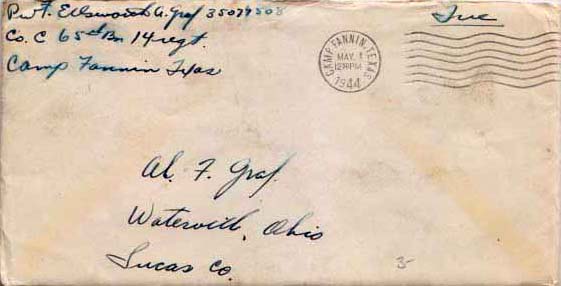 Pvt. Ellsworth A. Graf 35079508
Co. C 65th Bn 14 regt.
Camp Fannin Texas
Free
CAMP FANNIN, TEXAS
MAY 1
12 PM
1944
Al. F. Graf
Waterville, Ohio
Lucas Co.
3-